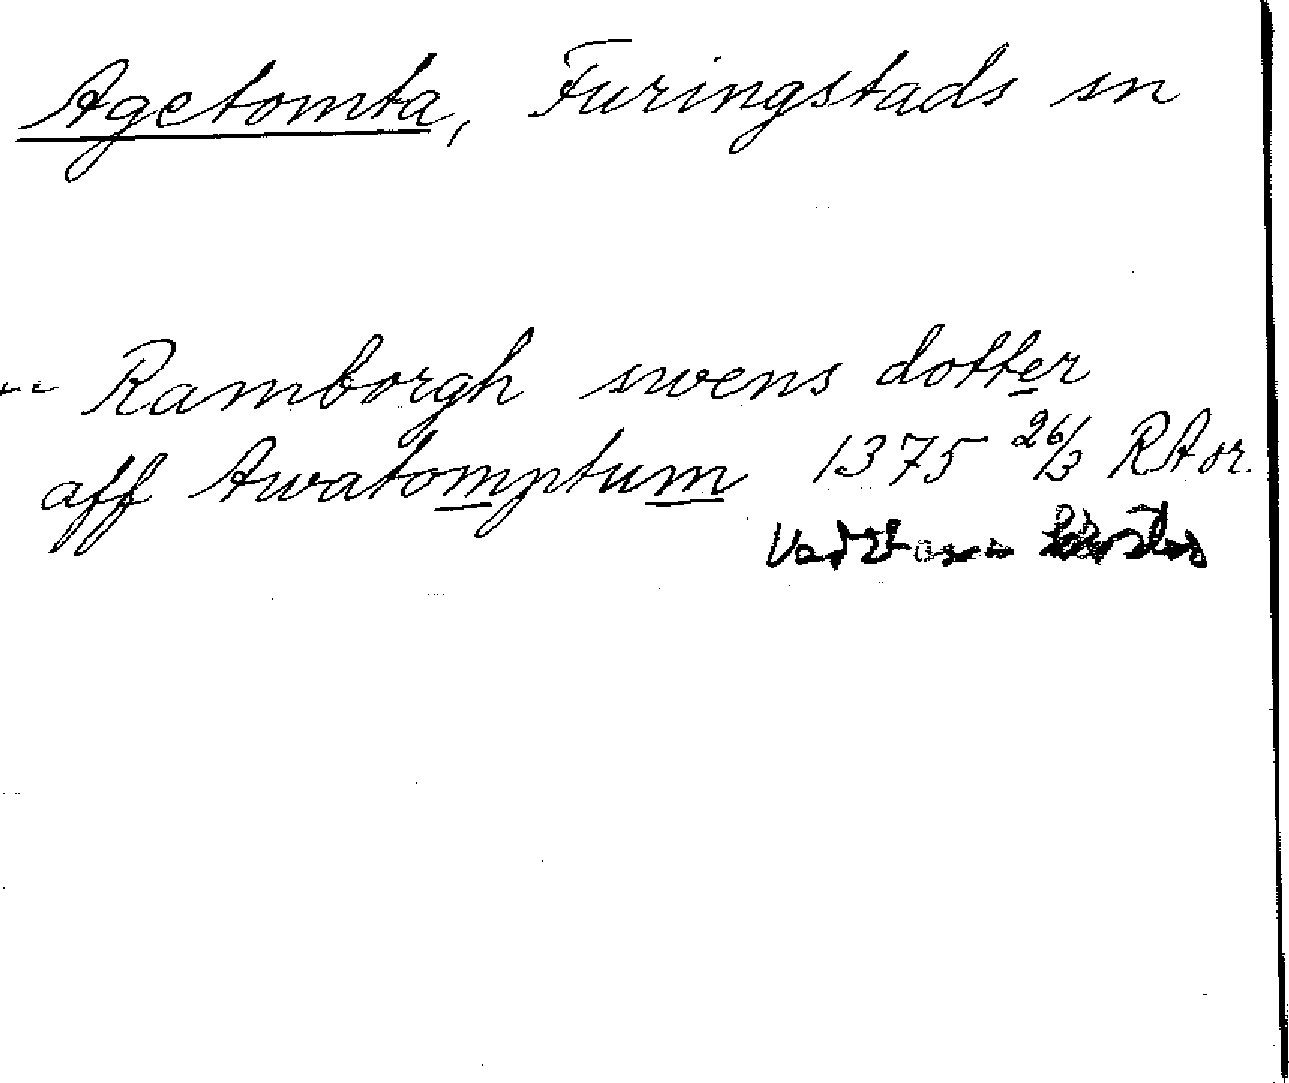 Agetomta, Furingstads sn
-- Ramborgh swens dotter
aff Awatomptum 1375 26/3 RA or.
Vadstena